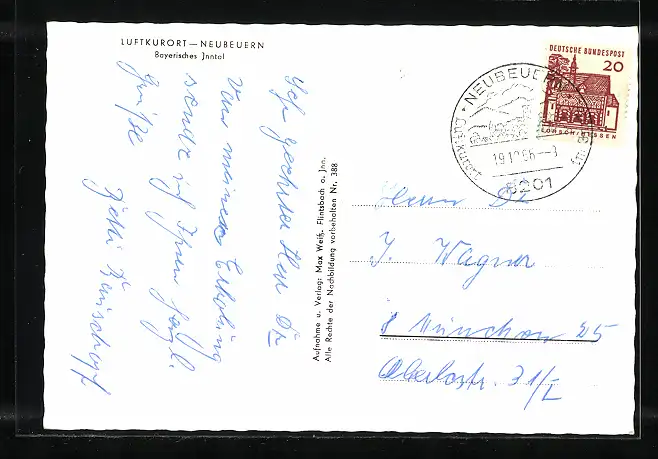 LUFTKURORT — NEUBEUERN
Bayerisches Jnntal
Sehr geehrter Herr Dr
Von meiner Erholung
sende ich Ihnen herzl.
Grüße
Aufnahme u. Verlag: Max Weiß, Flintsbach a. Jnn.
Alle Rechte der Nachbildung vorbehalten Nr. 388
DEUTSCHE BUNDESPOST
20
LORSCH/HESSEN
NEUBEUERN
Luftkurort
8201
Herrn Dr
J. Wagner
8 München 25